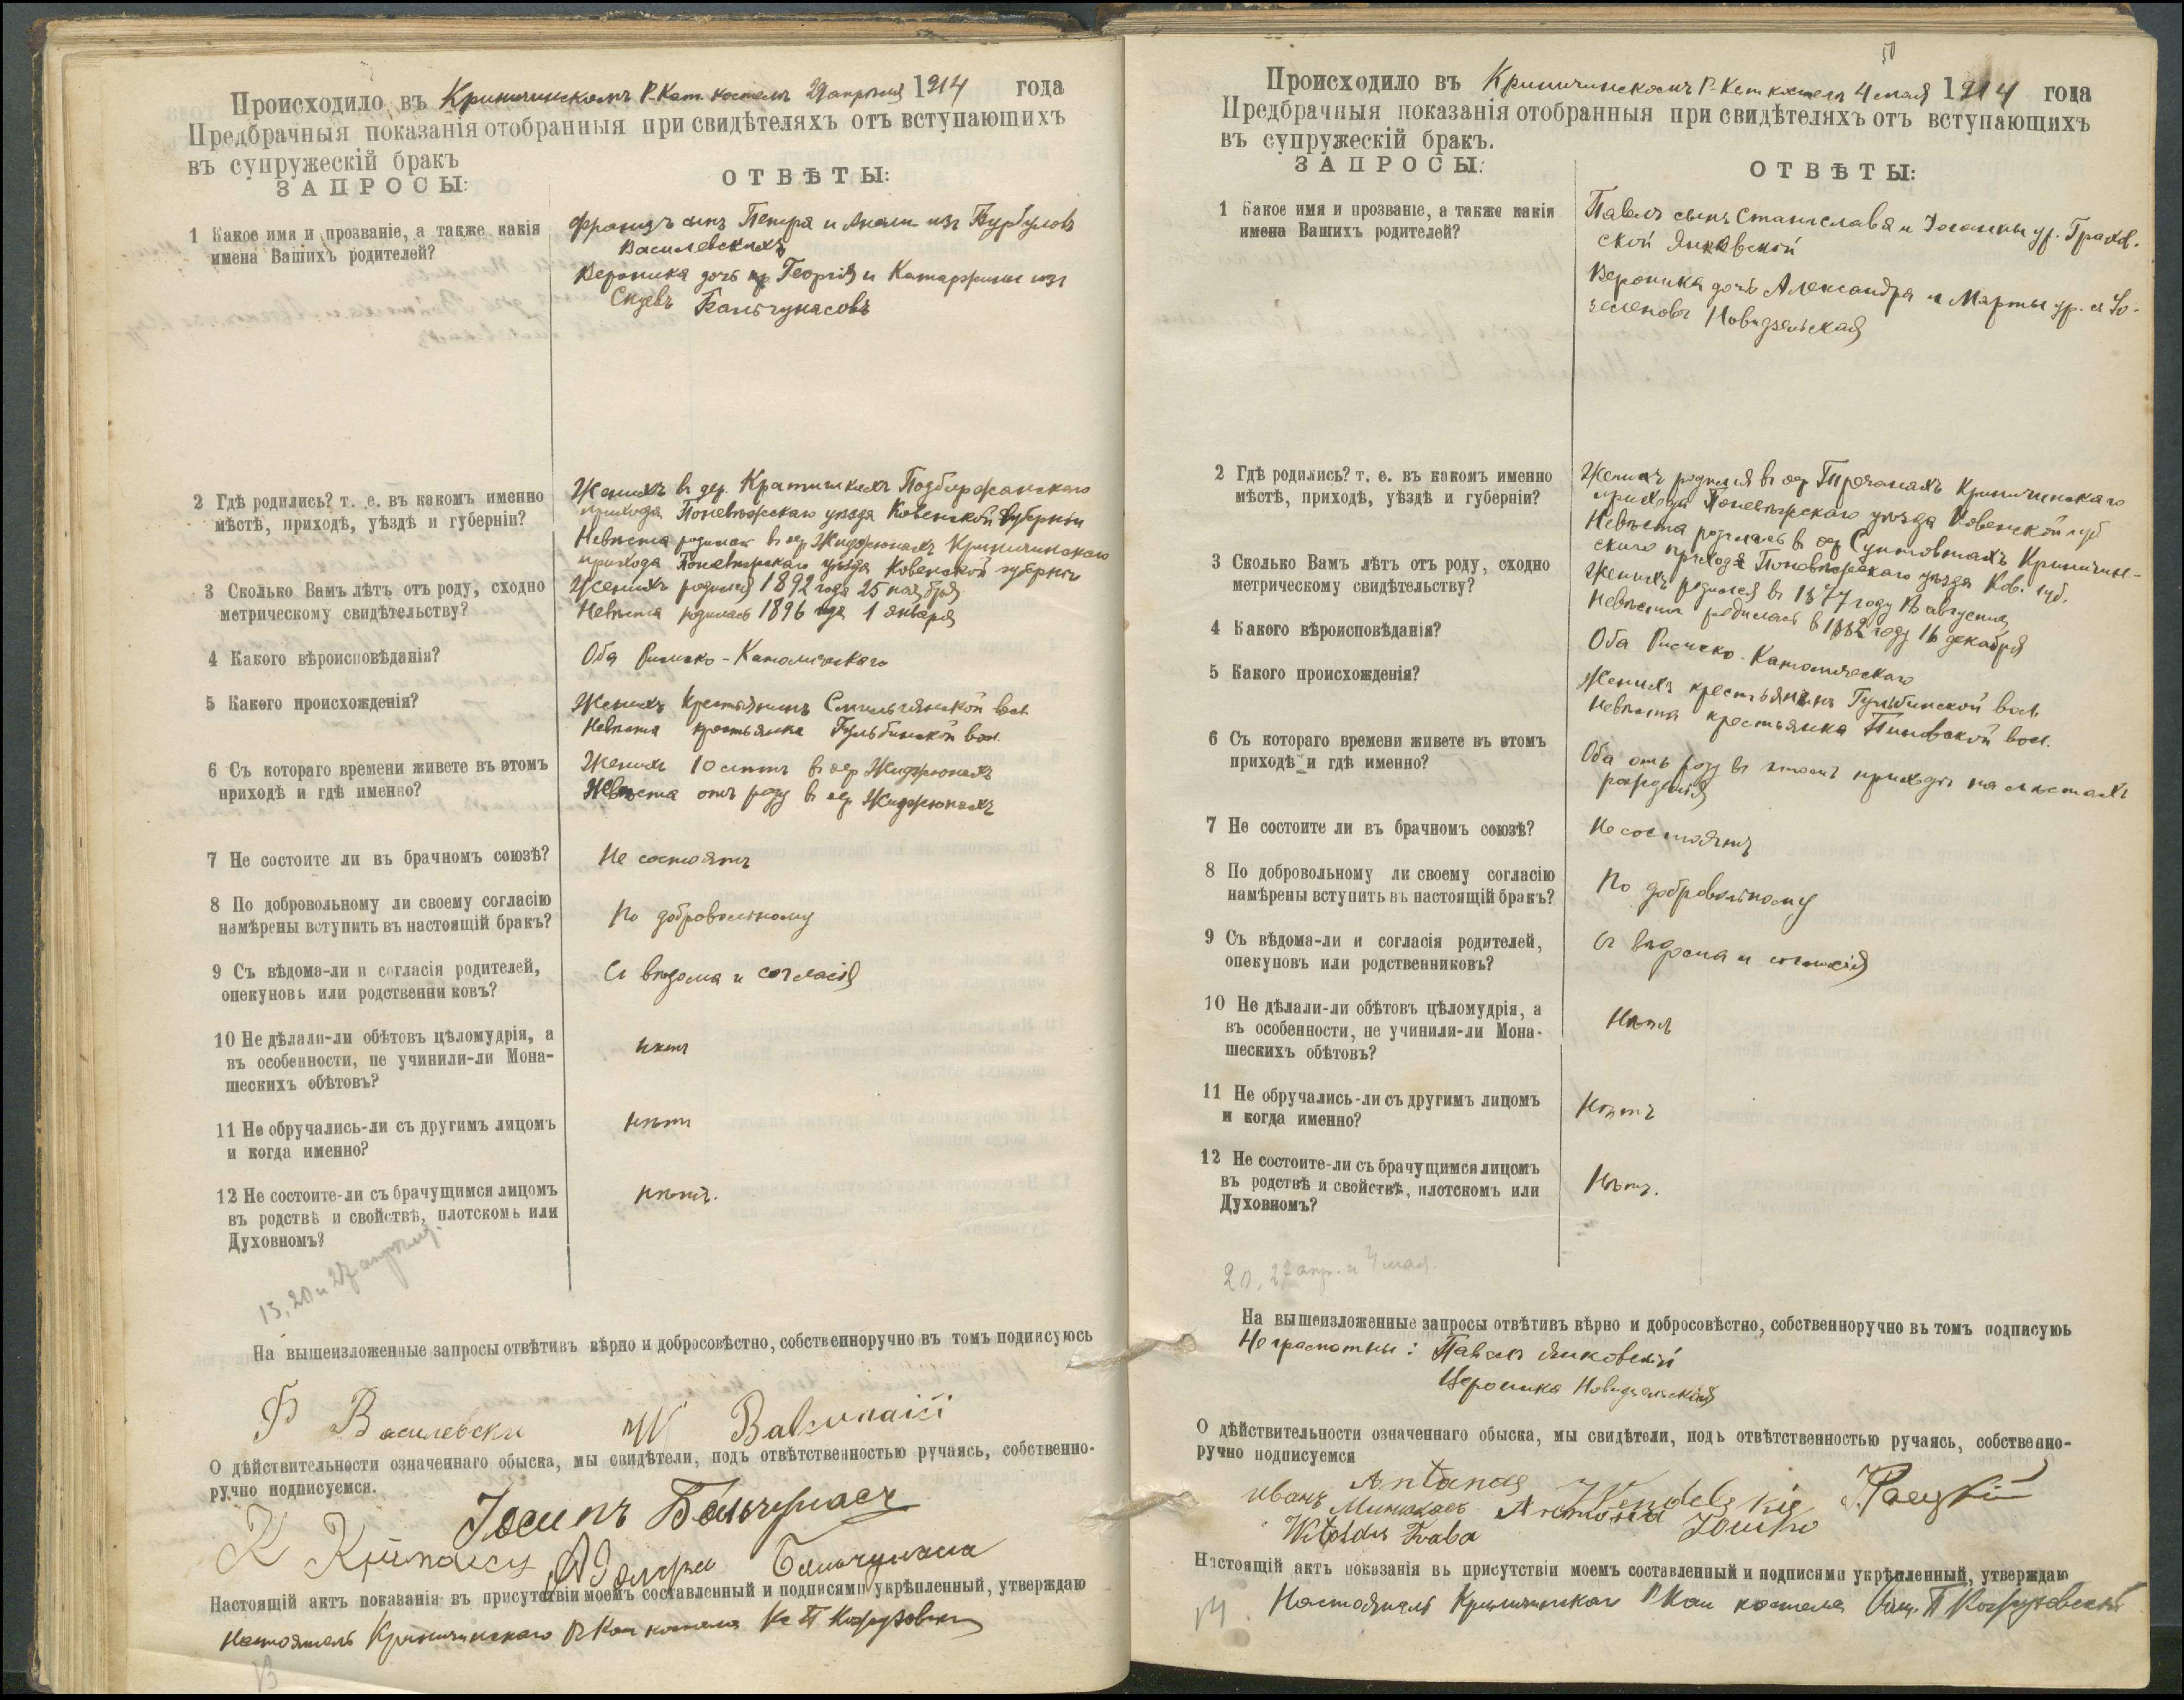 Происходило въ Криничинскомъ Р.-Кат. костелѣ 29 апрѣля 1914 года
Предбрачныя показанія отобранныя при свидѣтеляхъ отъ вступающихъ
въ супружескій бракъ
ЗАПРОСЫ:
ОТВѢТЫ:
1 Какое имя и прозваніе, а также какія
имена Вашихъ родителей?
Францъ сынъ Петра и Анели изъ Бурбуловъ
Василевскихъ
Вероника дочь Георгія и Катаржины изъ
Бальчунасовъ
2 Гдѣ родились? т. е. въ какомъ именно
мѣстѣ, приходѣ, уѣздѣ и губерніи?
Женихъ въ дер. Кратишкахъ Подбиржанскаго
прихода Поневѣжскаго уѣзда Ковенской губерніи
Невѣста родилась въ дер. Жиджюнахъ Криничинскаго
прихода Поневѣжскаго уѣзда Ковенской губерніи
3 Сколько Вамъ лѣтъ отъ роду, сходно
метрическому свидѣтельству?
Женихъ родился 1892 года 25 ноября
Невѣста родилась 1896 года 1 января
4 Какого вѣроисповѣданія?
Оба Римско-Католическаго
5 Какого происхожденія?
Женихъ Крестьянинъ Смильгянской вол.
Невѣста крестьянка Гульбинской вол.
6 Съ котораго времени живете въ этомъ
приходѣ и гдѣ именно?
Женихъ 10 лѣтъ въ дер Жиджюнахъ
Невѣста отъ роду въ дер Жиджюнахъ
7 Не состоите ли въ брачномъ союзѣ?
Не состоятъ
8 По добровольному ли своему согласію
намѣрены вступить въ настоящій бракъ?
По добровольному
9 Съ вѣдома-ли и согласія родителей,
опекуновъ или родственни ковъ?
Съ вѣдома и согласія
10 Не дѣлали-ли обѣтовъ цѣломудрія, а
въ особенности, не учинили-ли Мона-
шескихъ обѣтовъ?
нѣтъ
11 Не обручались-ли съ другимъ лицомъ
и когда именно?
нѣтъ
12 Не состоите-ли съ брачущимся лицомъ
въ родствѣ и свойствѣ, плотскомъ или
Духовномъ?
нѣтъ.
13, 20 и 27 апрѣля.
На вышеизложенные запросы отвѣтивъ вѣрно и добросовѣстно, собственноручно въ томъ подписуюсь
Ф Василевски
О дѣйствительности означеннаго обыска, мы свидѣтели, подъ отвѣтственностью ручаясь, собственно-
ручно подписуемся.
Іосипъ Бальчунасъ
Настоящій актъ показанія въ присутствіи моемъ составленный и подписями укрѣпленный, утверждаю
Настоятель Криничинскаго Р Кат костела
13
50
Происходило въ Криничинскомъ Р.-Кат костелѣ 4 мая 1914 года
Предбрачныя показанія отобранныя при свидѣтеляхъ отъ вступающихъ
въ супружескій бракъ.
ЗАПРОСЫ:
ОТВѢТЫ:
1 Какое имя и прозваніе, а также какія
имена Вашихъ родителей?
Павелъ сынъ Станислава и Іоганны ур.
Янковскій
Вероника дочь Александра и Марты ур.
Новидзельская
2 Гдѣ родились? т. е. въ какомъ именно
мѣстѣ, приходѣ, уѣздѣ и губерніи?
Женихъ родился въ дер Криничинскаго
прихода Поневѣжскаго уѣзда Ковенской губ
Невѣста родилась въ дер Сунтовтахъ Криничин-
скаго прихода Поневѣжскаго уѣзда Ков. губ.
3 Сколько Вамъ лѣтъ отъ роду, сходно
метрическому свидѣтельству?
Женихъ родился въ 1877 году августа
Невѣста родилась въ 1882 году 16 декабря
4 Какого вѣроисповѣданія?
Оба Римско-Католическаго
5 Какого происхожденія?
Женихъ крестьянинъ Гульбинской вол
Невѣста крестьянка вол.
6 Съ котораго времени живете въ этомъ
приходѣ и гдѣ именно?
Оба отъ роду въ этомъ приходѣ на мѣстахъ
рожденія
7 Не состоите ли въ брачномъ союзѣ?
Не состоятъ
8 По добровольному ли своему согласію
намѣрены вступить въ настоящій бракъ?
По добровольному
9 Съ вѣдома-ли и согласія родителей,
опекуновъ или родственниковъ?
Съ вѣдома и согласія
10 Не дѣлали-ли обѣтовъ цѣломудрія, а
въ особенности, не учинили-ли Мона-
шескихъ обѣтовъ?
Нѣтъ
11 Не обручались-ли съ другимъ лицомъ
и когда именно?
Нѣтъ
12 Не состоите-ли съ брачущимся лицомъ
въ родствѣ и свойствѣ, плотскомъ или
Духовномъ?
Нѣтъ.
20, 27 апр. и 4 мая.
На вышеизложенные запросы отвѣтивъ вѣрно и добросовѣстно, собственноручно въ томъ подписуюь
Неграмотны: Павелъ Янковскій
Вероника Новидзельская
О дѣйствительности означеннаго обыска, мы свидѣтели, подъ отвѣтственностью ручаясь, собственно-
ручно подписуемся
Иванъ Antanas
Настоящій актъ показанія въ присутствіи моемъ составленный и подписями укрѣпленный, утверждаю
14 Настоятель Криничинскаго Р Кат костела